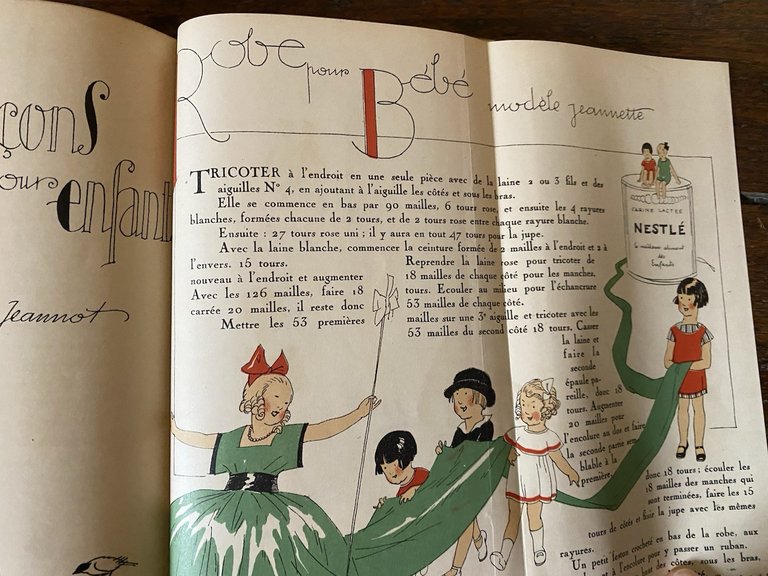 çons
our enfant
Jeannot
Robe
pour
Bébé
modèle jeannette
TRICOTER à l'endroit en une seule pièce avec de la laine 2 ou 3 fils et des
aiguilles Nº 4, en ajoutant à l'aiguille les côtés et sous les bras.
Elle se commence en bas par 90 mailles, 6 tours rose, et ensuite les 4 rayures
blanches, formées chacune de 2 tours, et de 2 tours rose entre chaque rayure blanche.
Ensuite : 27 tours rose uni ; il y aura en tout 47 tours pour la jupe.
Avec la laine blanche, commencer la ceinture formée de 2 mailles à l'endroit et 2 à
l'envers. 15 tours.
nouveau à l'endroit et augmenter
Avec les 126 mailles, faire 18
carrée 20 mailles, il reste donc
Mettre les 53 premières
Reprendre la laine rose pour tricoter de
18 mailles de chaque côté pour les manches.
tours. Ecouler au milieu pour l'échancrure
53 mailles de chaque côté.
mailles sur une 3e aiguille et tricoter avec les
53 mailles du second côté 18 tours. Casser
la laine et
faire la
seconde
épaule pa-
reille, donc 18
tours. Augmenter
20 mailles pour
l'encolure au dos et faire
la seconde partie sem-
blable à la
première,
donc 18 tours ; écouler les
18 mailles des manches qui
sont terminées, faire les 15
tours de côtés et finir la jupe avec les mêmes
rayures.
Un petit feston crocheté en bas de la robe, aux
et à l'encolure pour y passer un ruban.
des côtes, sous les bras.
FARINE LACTÉE
NESTLÉ
le meilleur aliment
des
Enfants